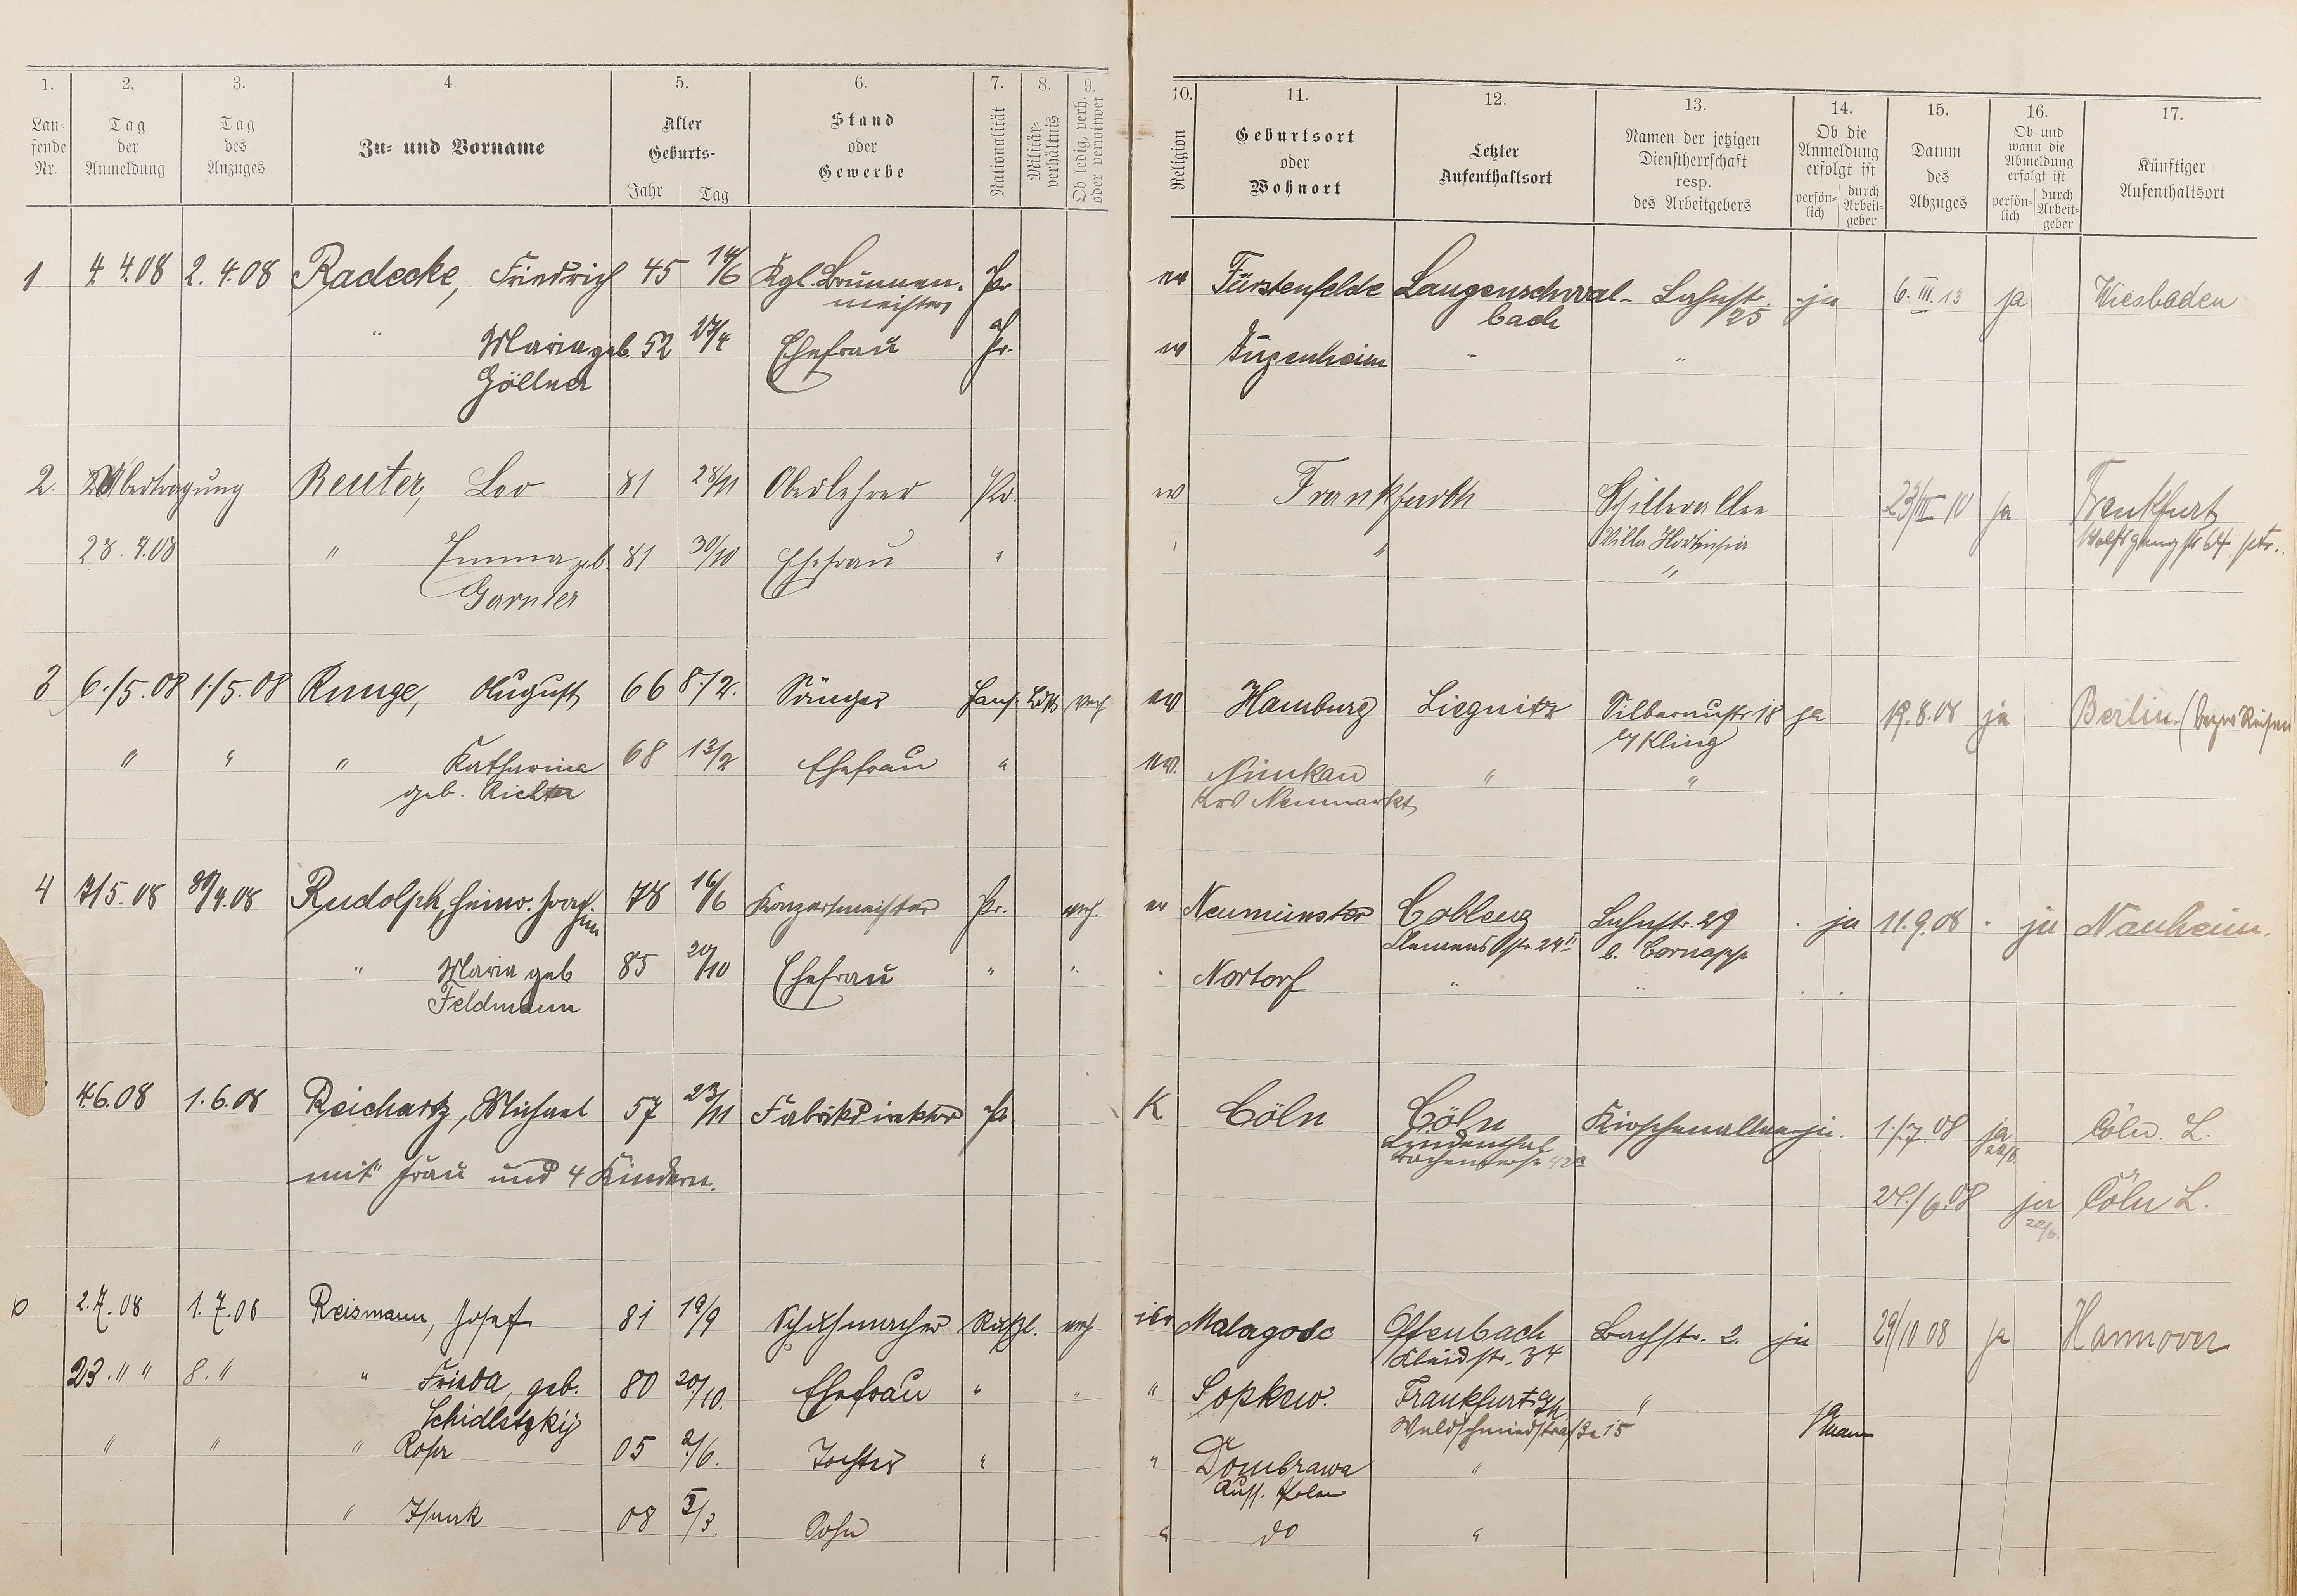 1. 2. 3. 4 5. 6. 7. 8. 9. 10. 11. 12. 13. 14. 15. 16. 17.
Lau-
fende
Nr.
Tag
der
Anmeldung
Tag
des
Anzuges
Zu- und Vorname
Alter
Geburts-
Jahr Tag
Stand
oder
Gewerbe
Nationalität
Militär-
verhältnis
Ob ledig, verh.
oder verwitwet
Religion
Geburtsort
oder
Wohnort
Letzter
Aufenthaltsort
Namen der jetzigen
Dienstherrschaft
resp.
des Arbeitgebers
Ob die
Anmeldung
erfolgt ist
persön-
lich
durch
Arbeit-
geber
Datum
des
Abzuges
Ob und
wann die
Abmeldung
erfolgt ist
persön-
lich
durch
Arbeit-
geber
Künftiger
Aufenthaltsort
1 4. 4.08 2. 4.08 Radecke, Friedrich 45 14/6 Kgl. Brunnen- Pr ev Fürstenfelde Langenschwal- Luhnstr. ja 6. III. 13 ja Wiesbaden
meister bach 25
" Maria geb. 52 27/4 Ehefrau Pr. ev Jugenheim " "
Göllner
2. Übertragung Reuter, Leo 81 28/11 Oberlehrer Pr. ev Frankfurth Schillerallee 23/III 10 ja Frankfurt
28. 4.08 " Emma geb. 81 30/10 Ehefrau " " " Villa Hortensia Wolfsgangstr 64 ptr.
Garnier "
3 6./5.08 1./5.08 Runge, August 66 8./2. Sänger Hans. verh ev Hamburg Liegnitz Silbernustr 18 ja 19.8.08 ja Berlin
b/ Kling
" " " Katharina 68 13/2 Ehefrau " ev. Nimkau " "
geb. Richter Krs Neumarkt
4 7/5.08 30/4.08 Rudolph, Heinr. 78 16/6 Konzertmeister Pr. verh. ev Neumünster Coblenz Luhnstr. 29 . ja 11.9.08 . ja Nauheim.
Clemensstr. 24 II b. Cornapp
" Maria geb 85 20/10 Ehefrau " " . Nortorf " " . .
Feldmann
4.6.08 1.6.08 Reichartz, Michael 57 23/11 Fabrikdirektor Pr. K. Cöln Cöln Kirschenallee ja. 1./7.08 ja Cöln. L.
Lindenthal
mit Frau und 4 Kindern.
28./6.08 ja Cöln L.
6 2.7.08 1.7.08 Reismann, Josef 81 19/9 Schuhmacher Rußl. verh isr. Malagosc Offenbach Bachstr. 2. ja 29/10 08 ja Hannover
34
23. " " 8. " " Frieda, geb. 80 20/10. Ehefrau " " " Sopkow. Frankfurt "
Schidletzkij Waldschmidstraße 15
" " " Rosa 05 2/6. Tochter " " Dombrawa "
Russ. Polen
" Isaak 08 5/3. Sohn " do "